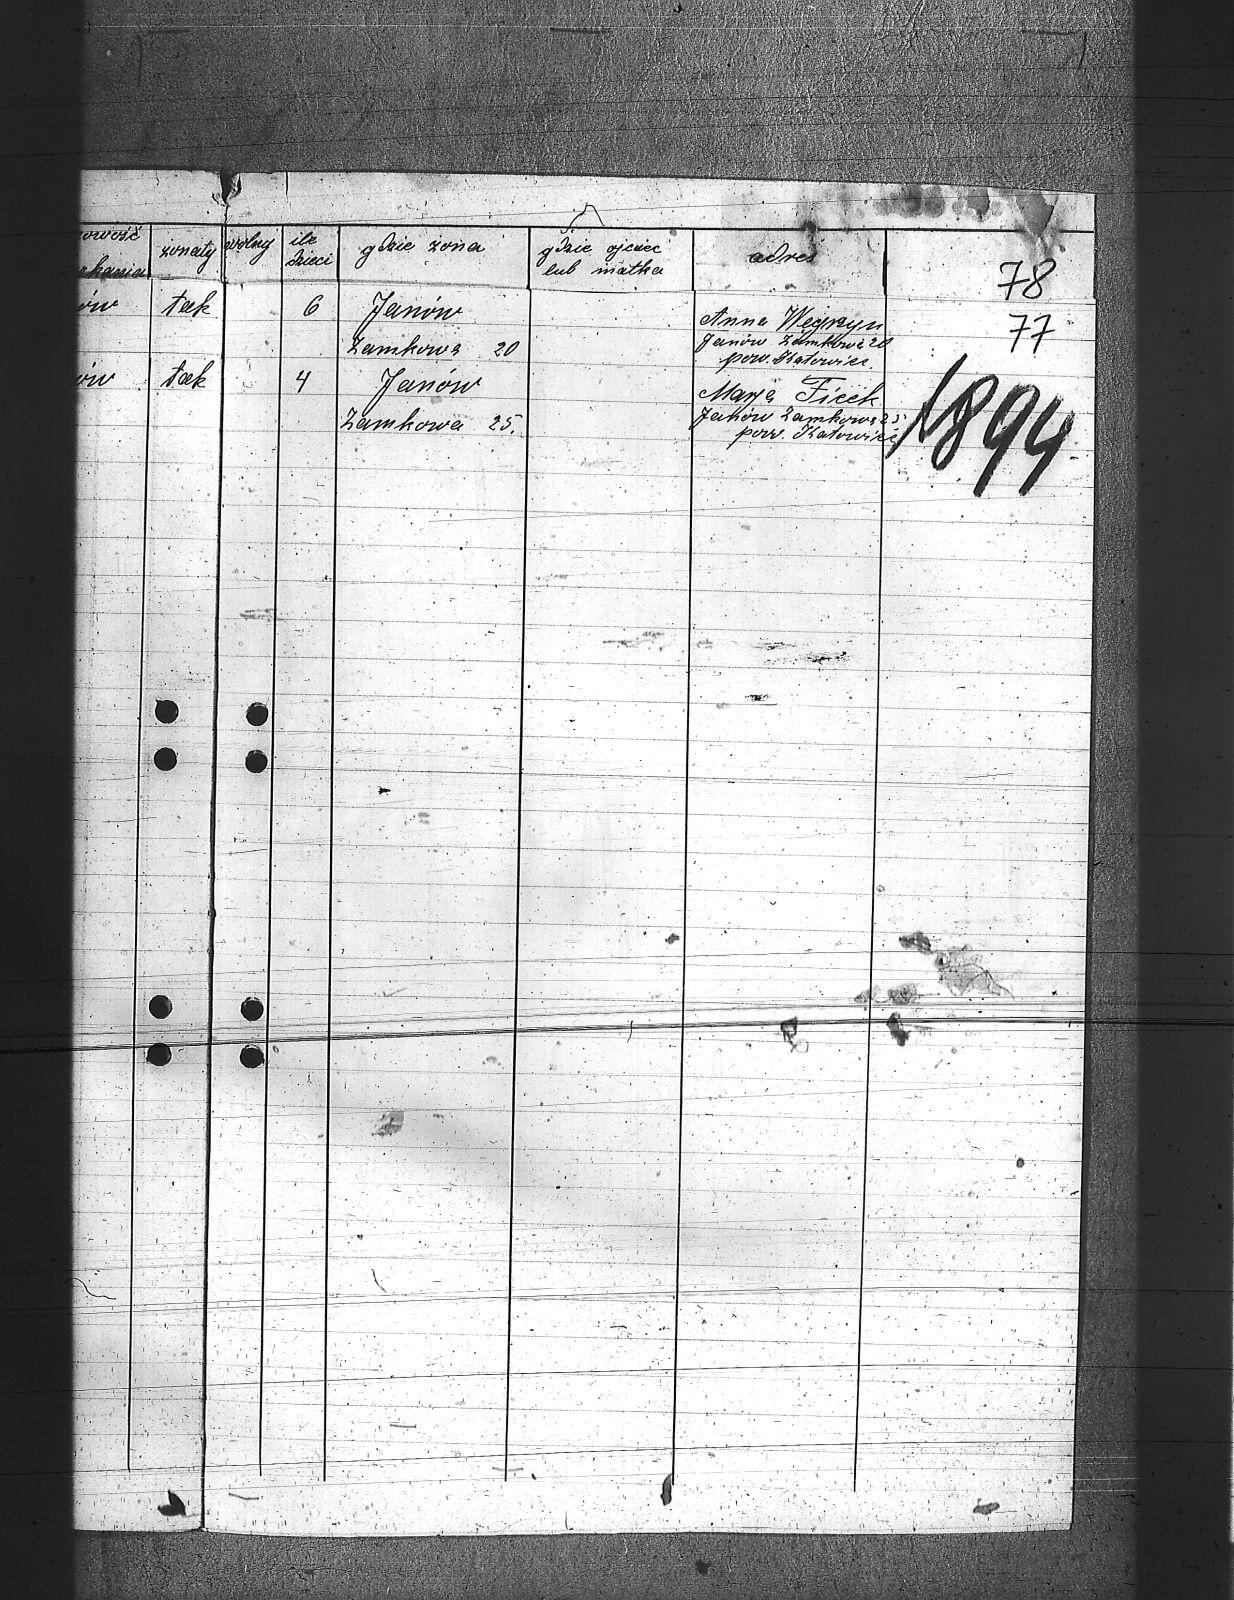 owość żonaty wolny ile gdzie żona gdzie ojciec adres
kania dzieci lub matka
78
ów tak 6 Janów Anna Węgrzyn
77
Zamkowa 20 Janów Zamkowa 20
pow. Katowice.
ów tak 4 Janów Marja Ficek
Zamkowa 25. Janów Zamkowa 25
pow. Katowice
1894